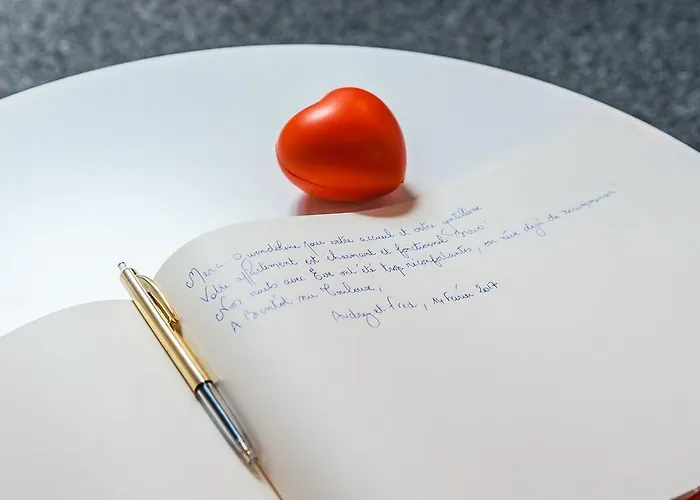 Merci Gwendoline pour votre accueil et votre gentillesse
Votre appartement est charmant et fonctionnel. Bravo!
Nos nuits avec Eve ont été trop réconfortantes, on rêve déjà de recommencer!
A Bientôt sur Toulouse,
Audrey et Fred, 14 Février 2017